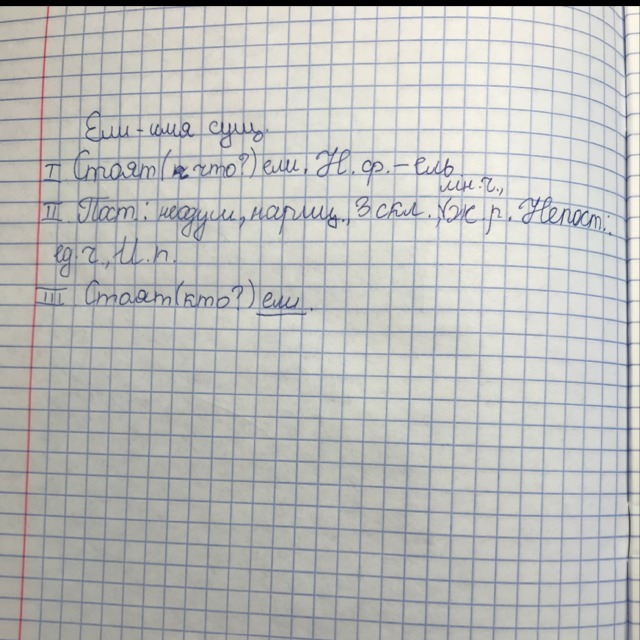 Ели - имя сущ.
I Стоят (что?) ели. Н. ф. – ель
мн. ч.,
II Пост: неодуш, нариц., 3 скл., ж. р. Непост:
ед. ч, И. п.
III Стоят (кто?) ели.